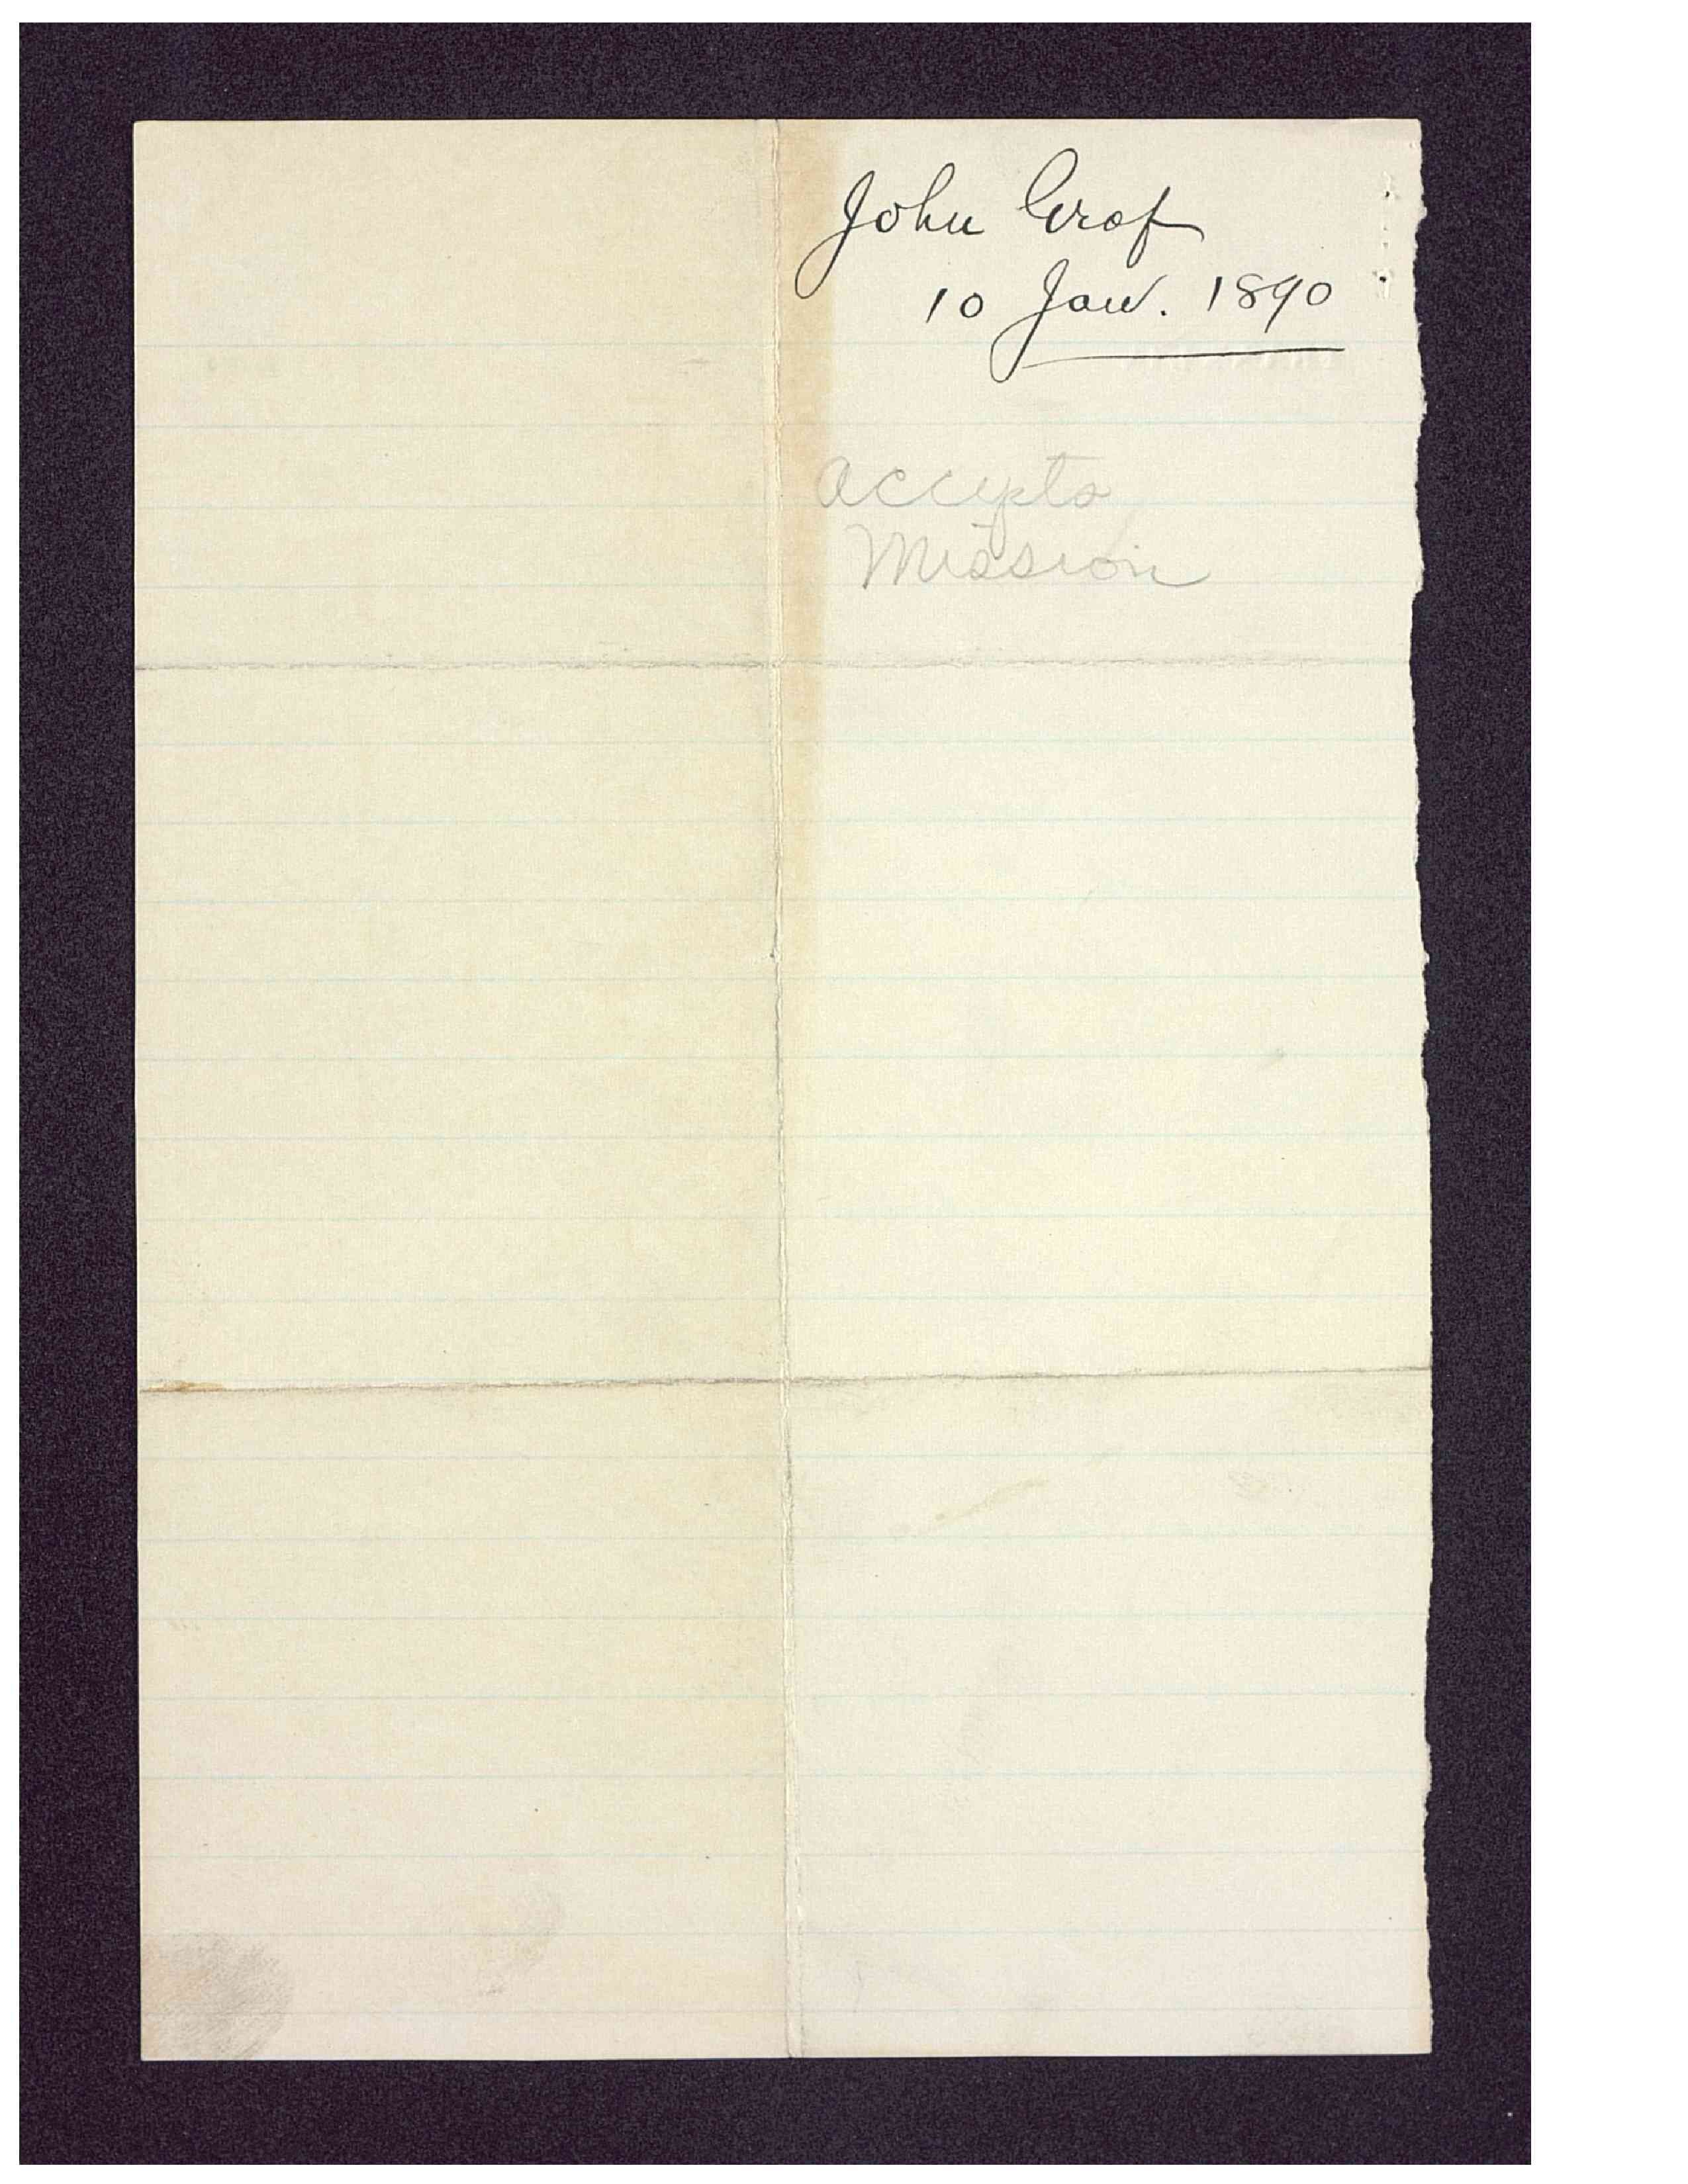 John Graf
10 Jan. 1890
accepts
Mission